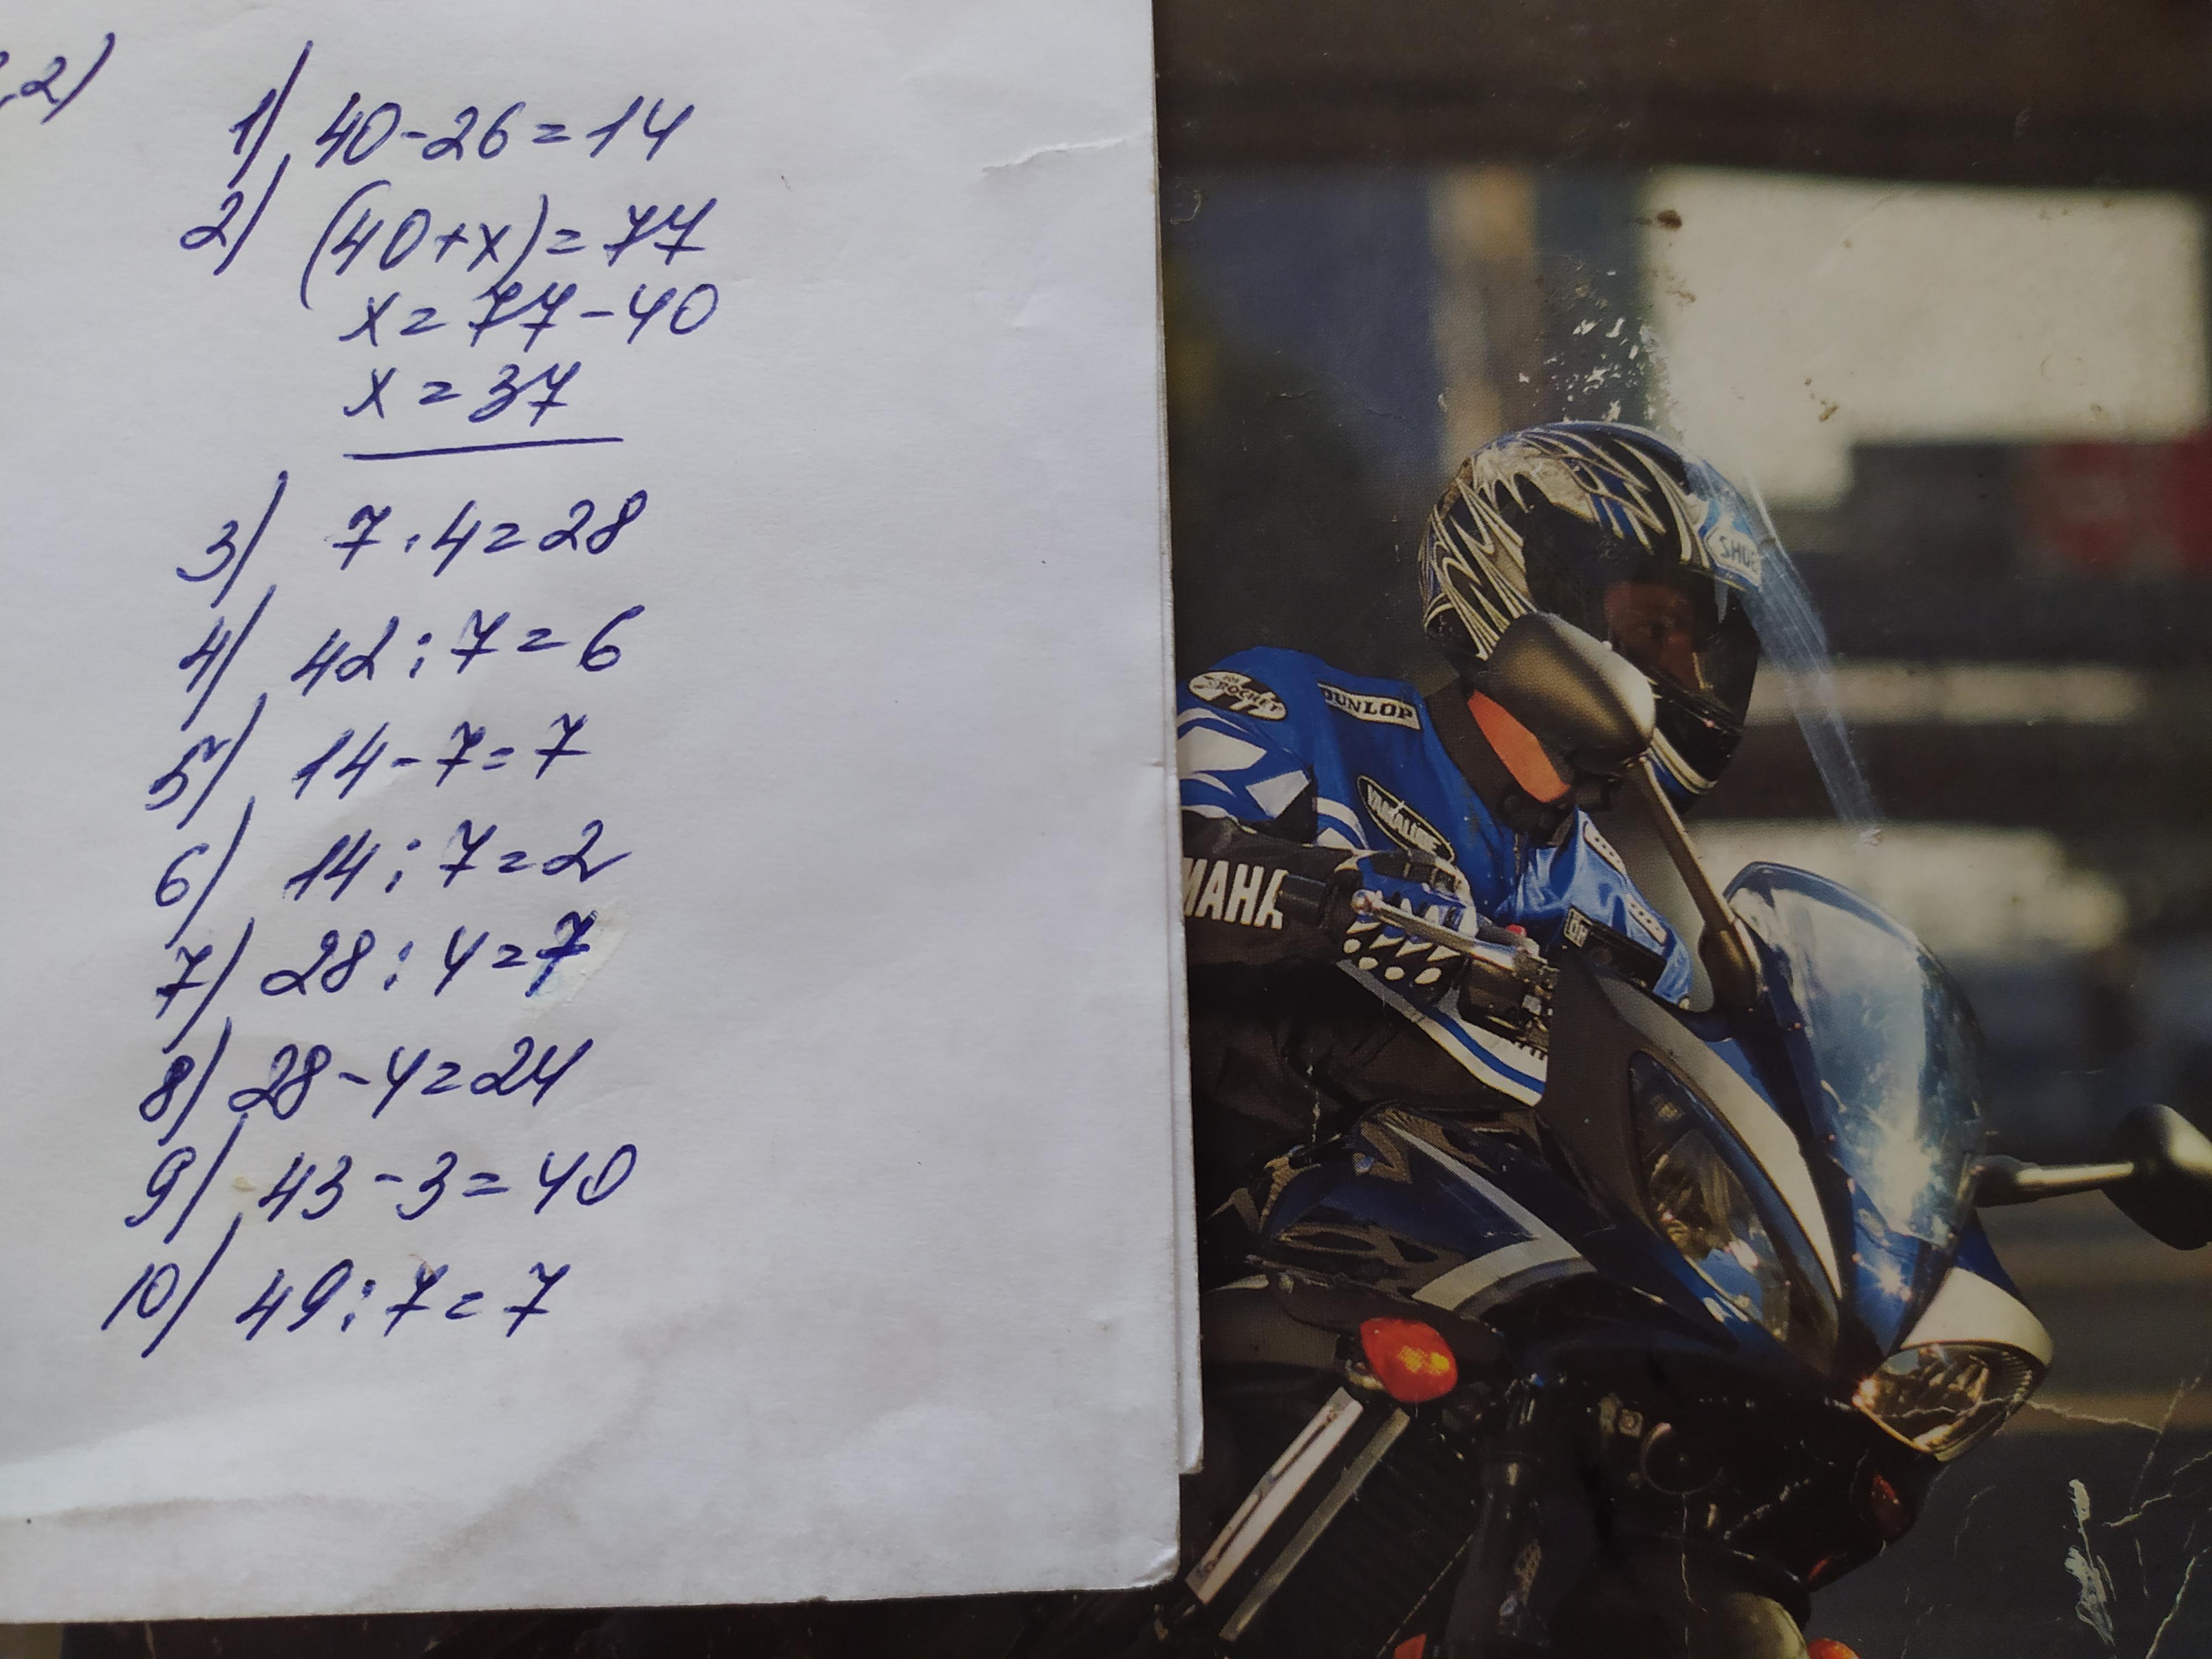 2)
1) 40-26=14
2) (40+x)=77
x=77-40
x=37
3) 7·4=28
4) 42:7=6
5) 14-7=7
6) 14:7=2
7) 28:4=7
8) 28-4=24
9) 43-3=40
10) 49:7=7
SHOE
ROCKET
DUNLOP
YAMALUBE
MAHA